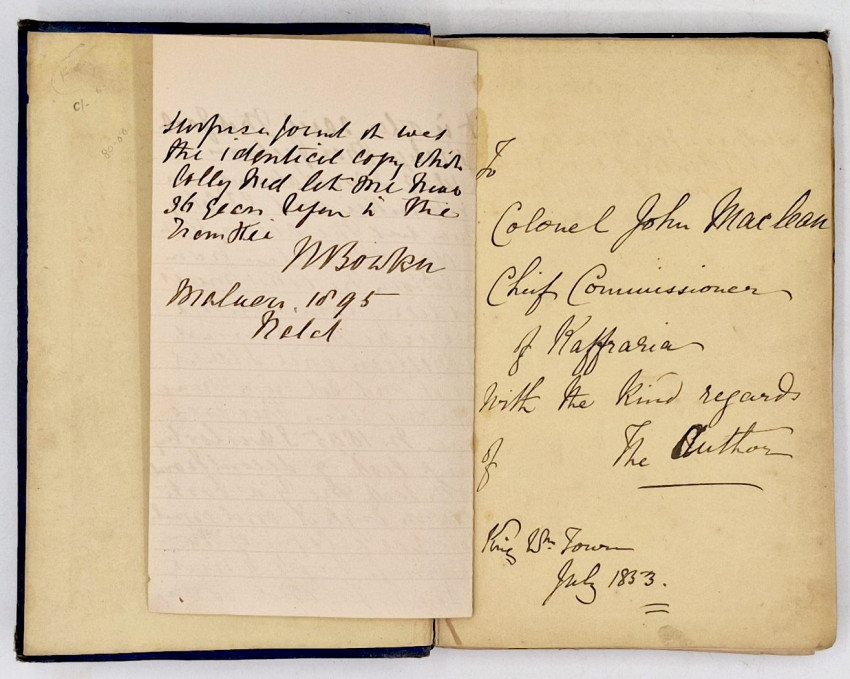 surprise found it was
the identical copy which
Colley had let me have
36 years before in the
Transkei
MBowker
Malvern. 1895
Natal
To
Colonel John Maclean
Chief Commissioner
of Kaffraria
With the kind regards
of The Author
King Wm. Town
July 1853.